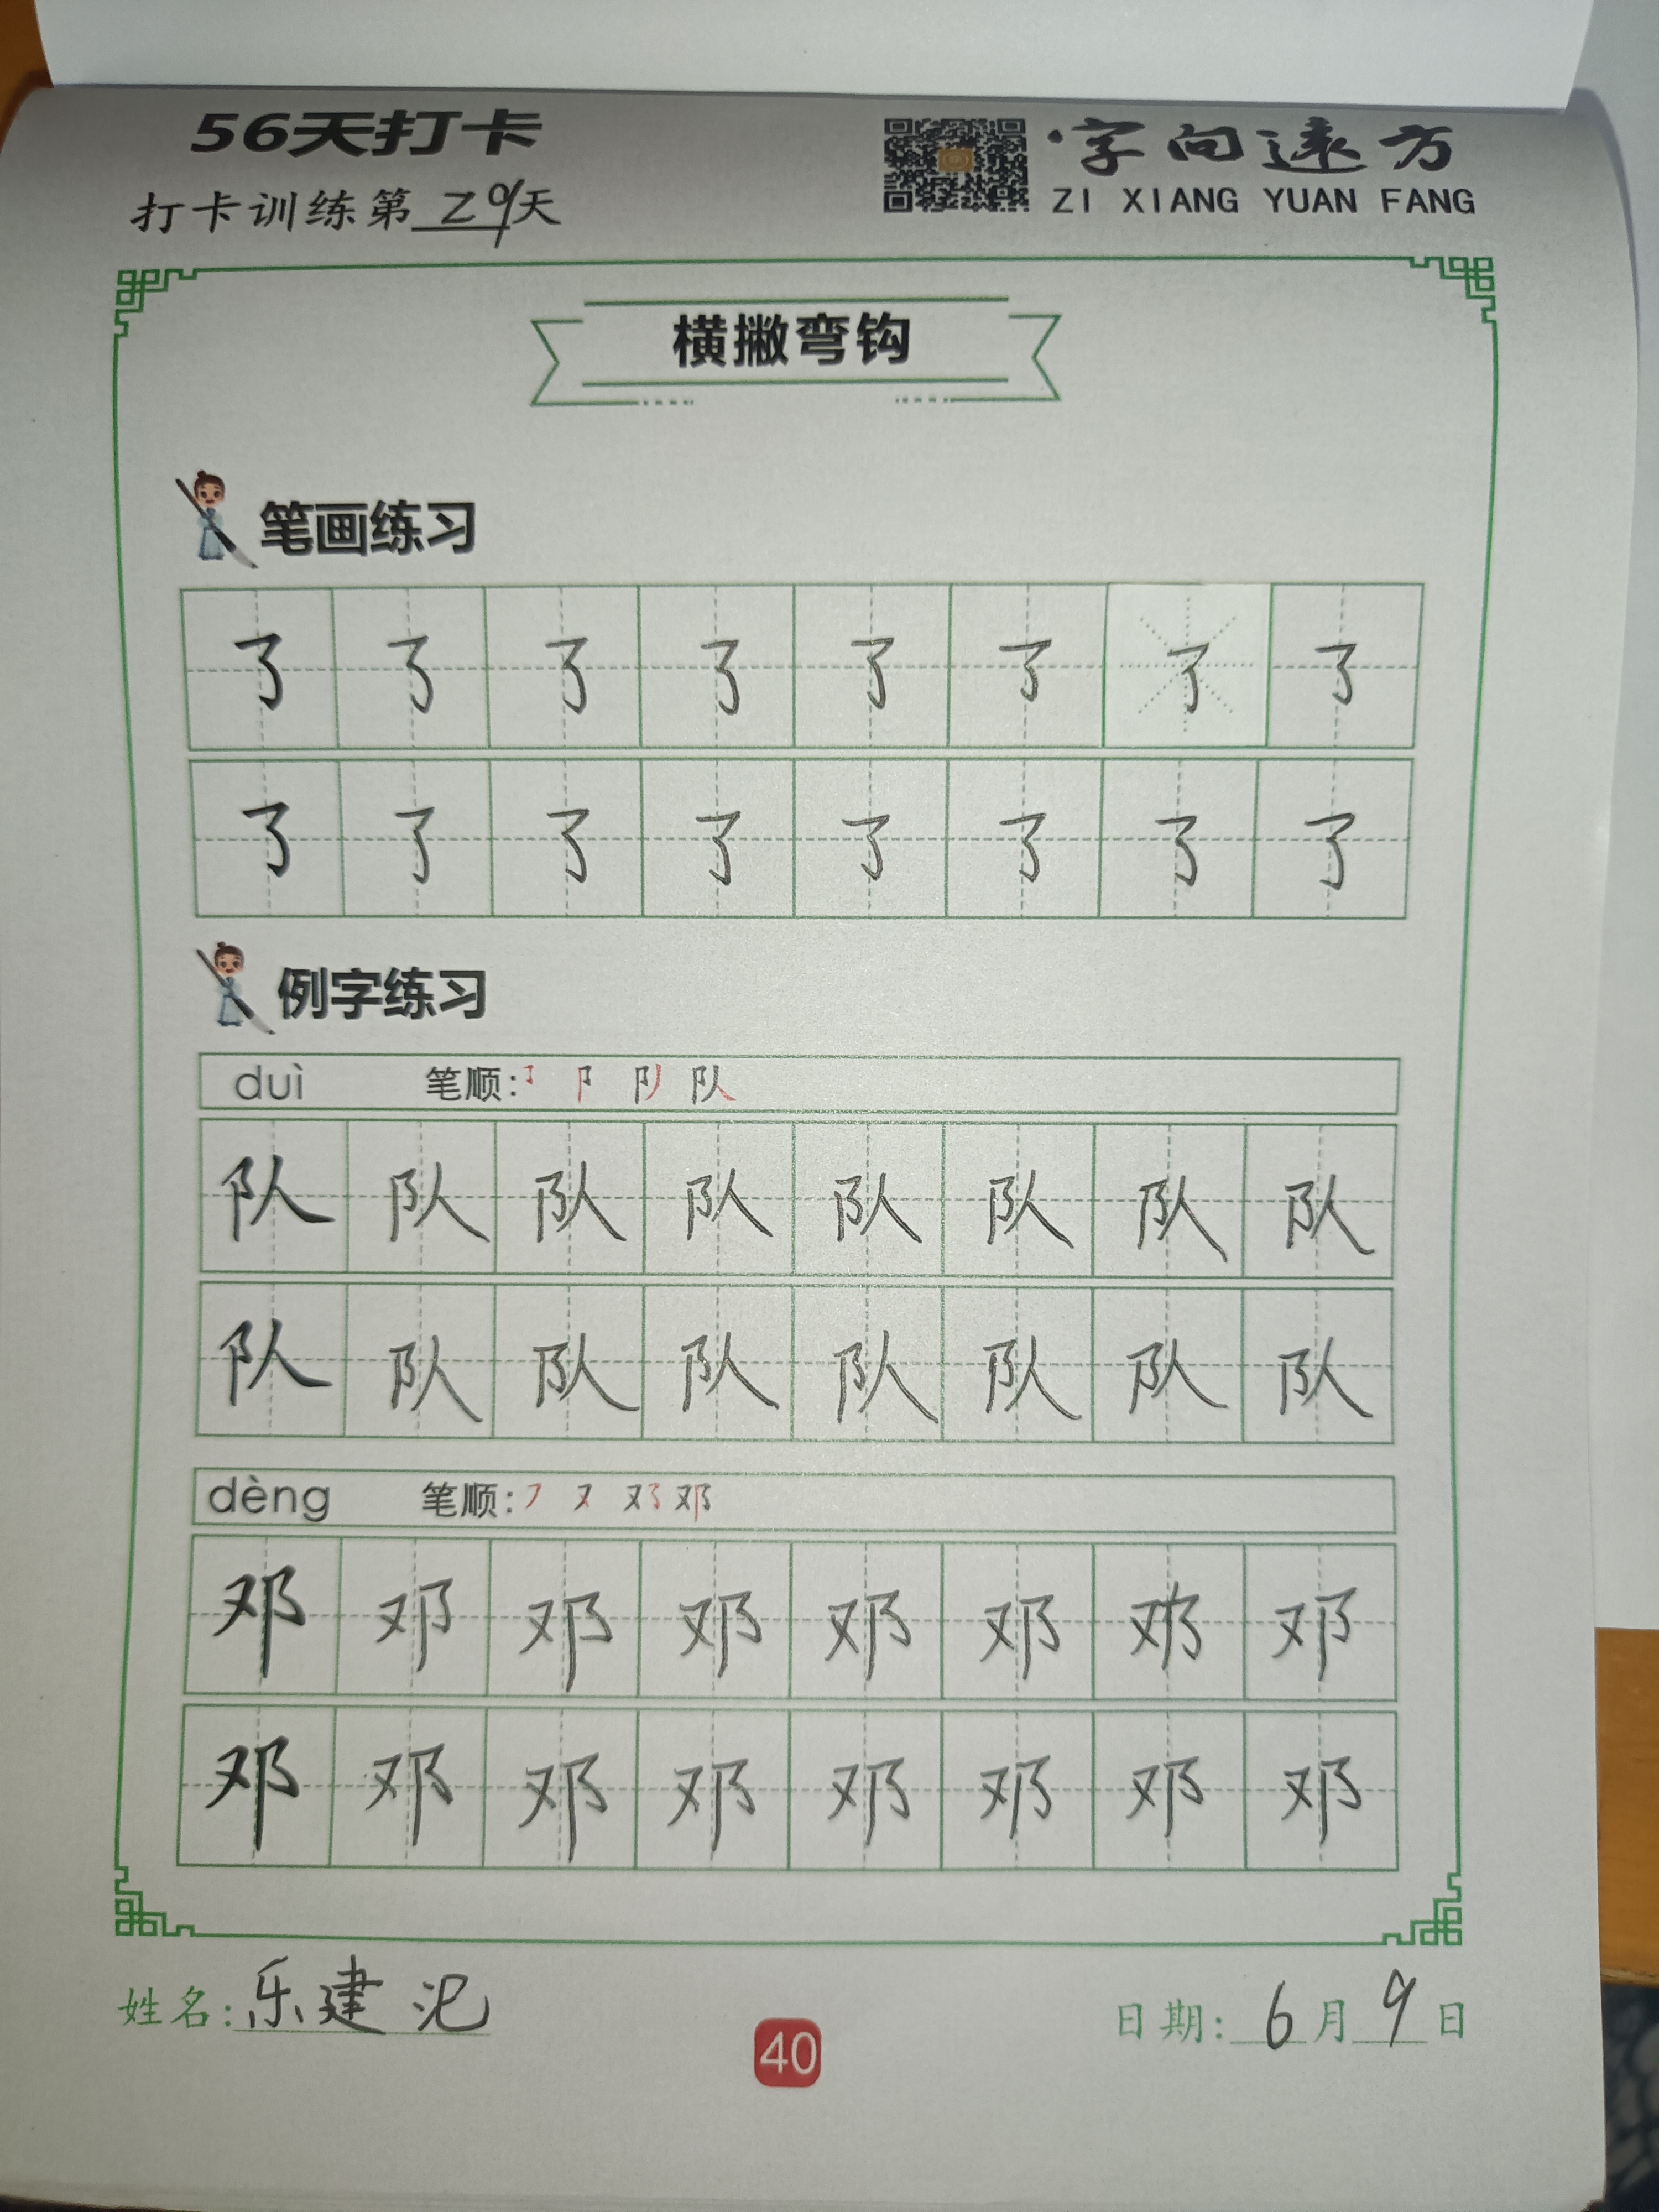 56天打卡
字向远方
打卡训练第29天
ZI XIANG YUAN FANG
横撇弯钩
笔画练习
㇌ ㇌ ㇌ ㇌ ㇌ ㇌ ㇌ ㇌
㇌ ㇌ ㇌ ㇌ ㇌ ㇌ ㇌ ㇌
例字练习
duì 笔顺: ㇌ 阝 队 队
队 队 队 队 队 队 队 队
队 队 队 队 队 队 队 队
dèng 笔顺: ㇇ 又 邓 邓
邓 邓 邓 邓 邓 邓 邓 邓
邓 邓 邓 邓 邓 邓 邓 邓
姓名: 乐建 日期: 6月9日
40